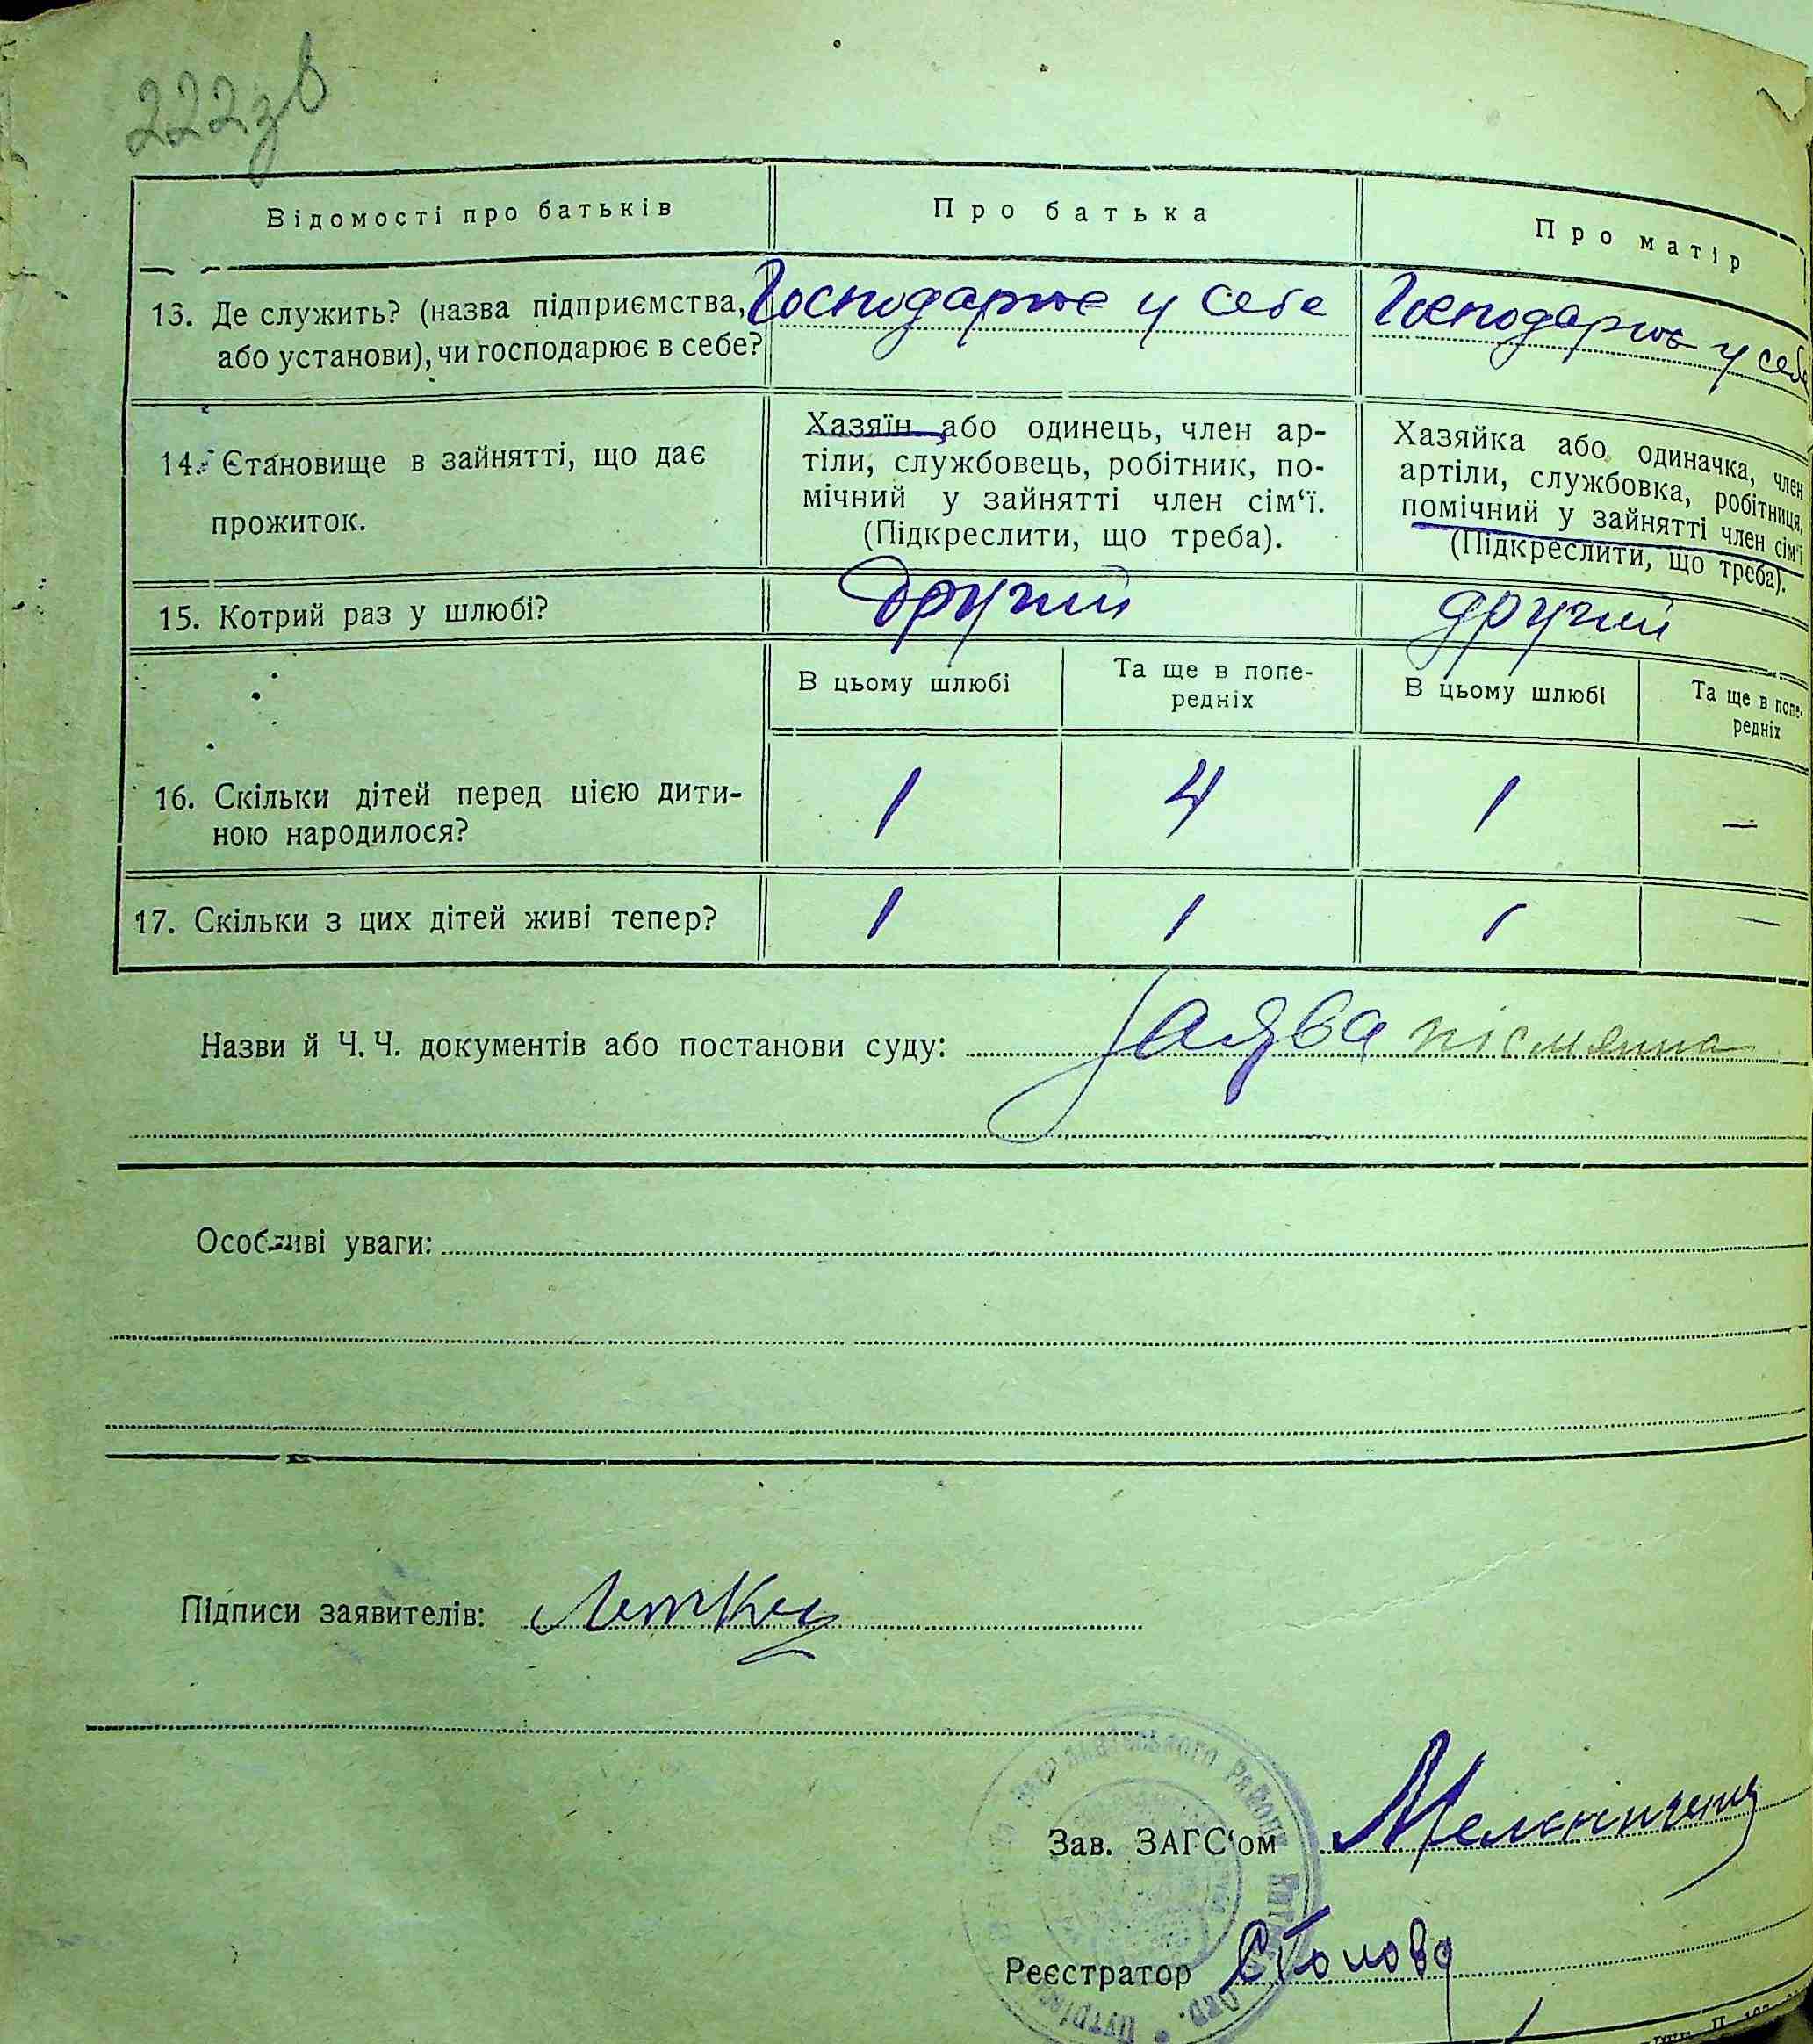 222зв
Відомості про батьків
Про батька
Про матір
13. Де служить? (назва підприємства,
або установи), чи господарює в себе?
Господарює у себе
Господарює у себе
14. Становище в зайнятті, що дає
прожиток.
Хазяїн або одинець, член ар-
тіли, службовець, робітник, по-
мічний у зайнятті член сім‘ї.
(Підкреслити, що треба).
Хазяйка або одиначка, член
артіли, службовка, робітниця,
помічний у зайнятті член сім‘ї
(Підкреслити, що треба).
15. Котрий раз у шлюбі?
другий
другий
В цьому шлюбі
Та ще в попе-
редніх
В цьому шлюбі
Та ще в попе-
редніх
16. Скільки дітей перед цією дити-
ною народилося?
1 4 1 —
17. Скільки з цих дітей живі тепер?
1 1 1 —
Назви й Ч. Ч. документів або постанови суду: Заява пісмянна
Особливі уваги:
Підписи заявителів:
Зав. ЗАГС‘ом
Реєстратор